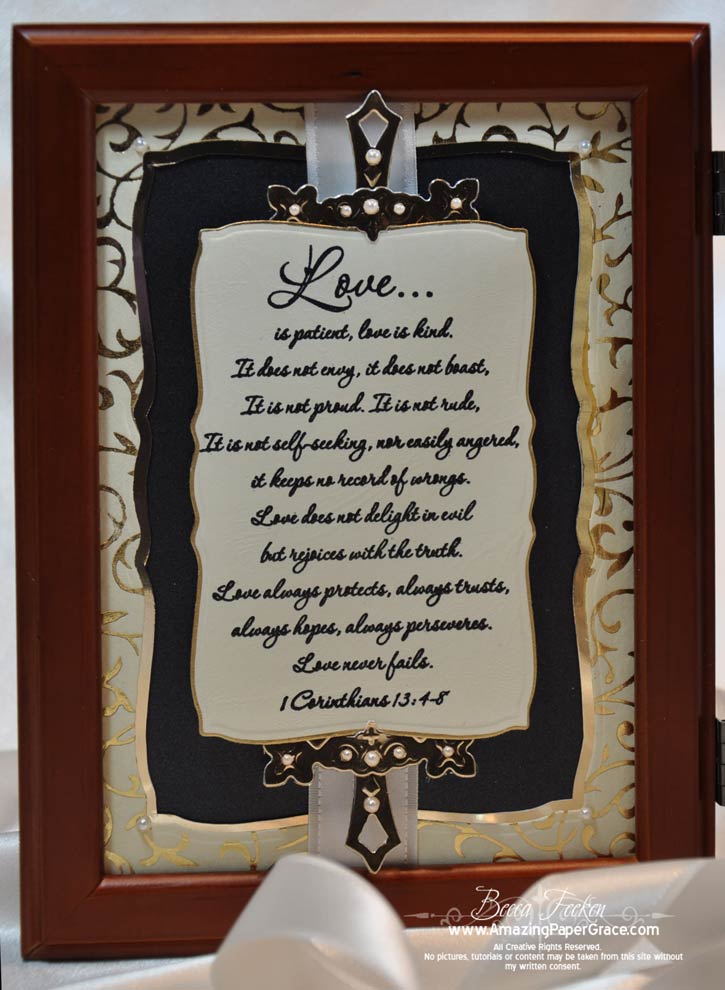 Love...
is patient, love is kind.
It does not envy, it does not boast,
It is not proud. It is not rude,
It is not self-seeking, nor easily angered,
it keeps no record of wrongs.
Love does not delight in evil
but rejoices with the truth.
Love always protects, always trusts,
always hopes, always perseveres.
Love never fails.
1 Corinthians 13:4-8
Becca Feeken
www.AmazingPaperGrace.com
All Creative Rights Reserved.
No pictures, tutorials or content may be taken from this site without
my written consent.